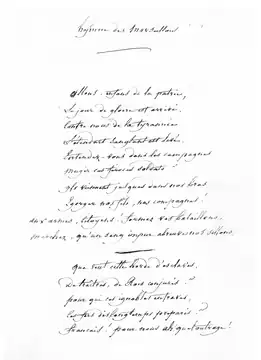 hymne des Marseillois
Allons enfans de la patrie,
Le jour de gloire est arrivé.
Contre nous de la tyrannie
L'étendart sanglant est levé.
Entendez vous dans les campagnes
mugir ces féroces soldats?
ils viennent jusques dans nos bras
Egorger nos fils, nos compagnes!
aux armes, citoyens! formez vos bataillons,
marchez, qu'un sang impur abreuve nos sillons.
Que veut cette horde d'esclaves,
De traitres, de Rois conjurés?
pour qui ces ignobles entraves,
Ces fers dès longtemps préparés?
Français! pour nous, ah quel outrage!